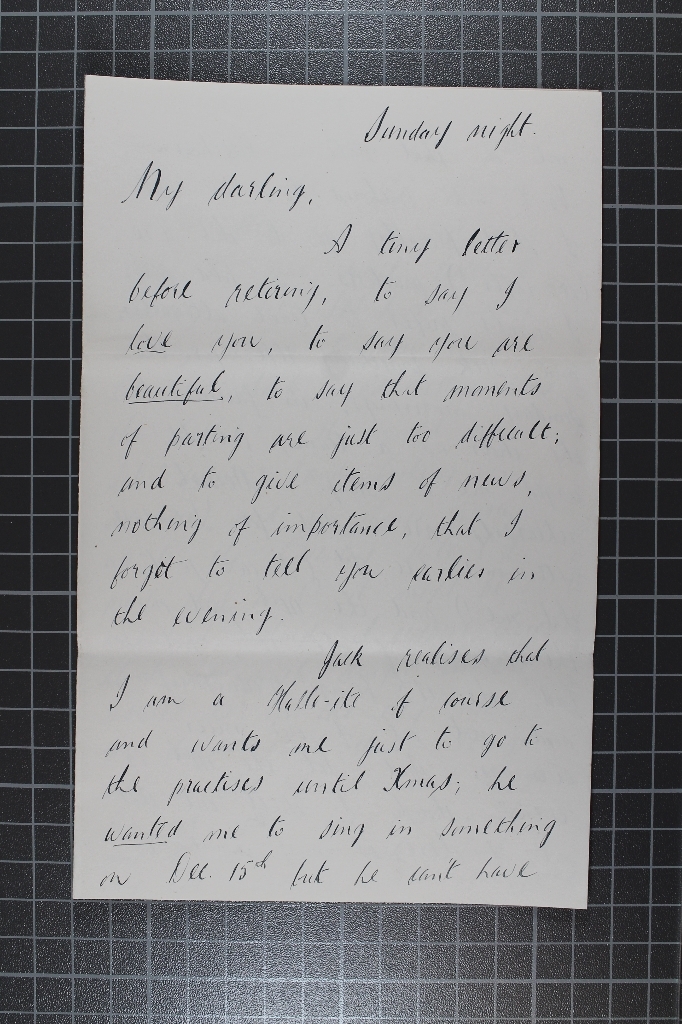 Sunday night.
My darling,
A tiny letter
before retiring, to say I
love you, to say you are
beautiful, to say that moments
of parting are just too difficult;
and to give items of news,
nothing of importance, that I
forgot to tell you earlier in
the evening.
Jack realises that
I am a Halle-ite of course
and wants me just to go to
the practises until Xmas; he
wanted me to sing in something
on Dec. 15th but he can't have